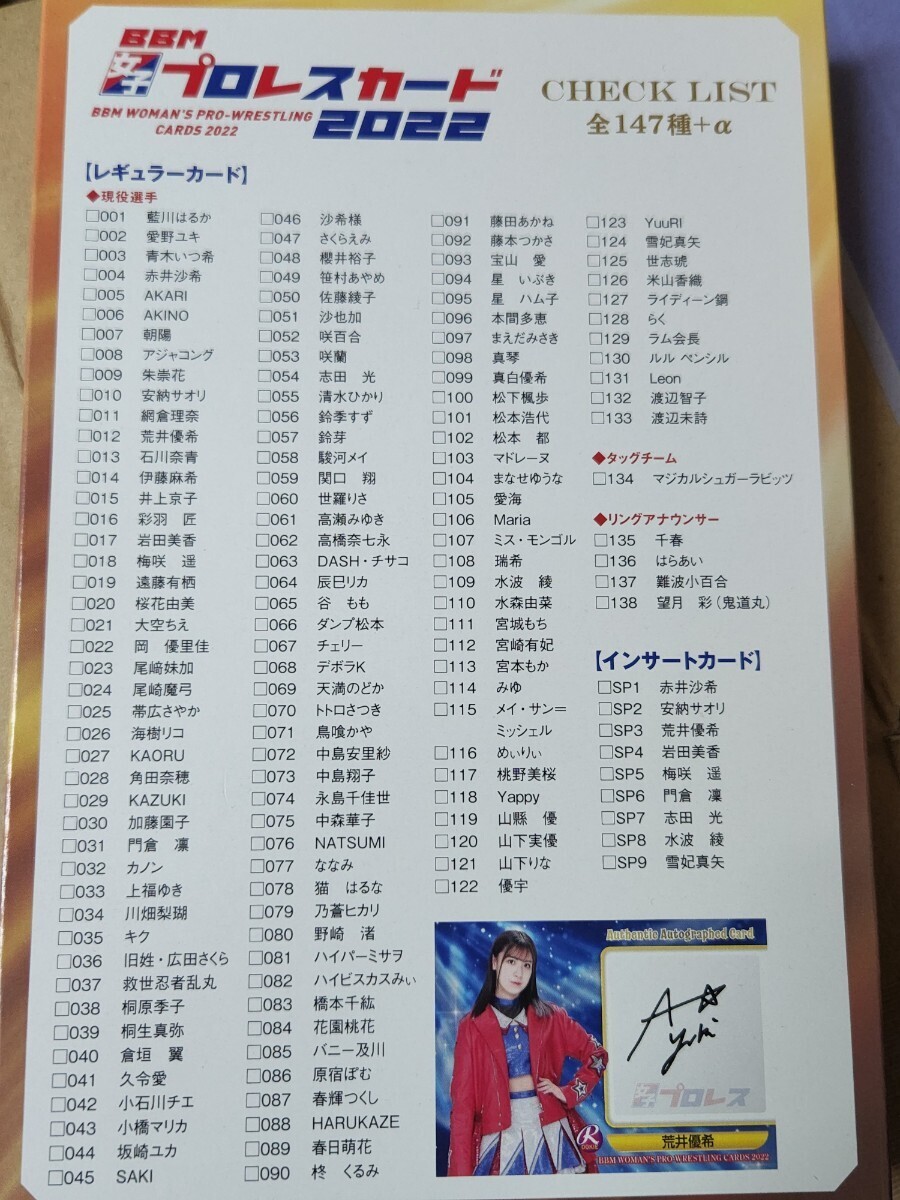 BBM
女子プロレスカード
BBM WOMAN'S PRO-WRESTLING
CARDS 2022
2022
CHECK LIST
全147種+α
【レギュラーカード】
◆現役選手
□001 藍川はるか
□002 愛野ユキ
□003 青木いつ希
□004 赤井沙希
□005 AKARI
□006 AKINO
□007 朝陽
□008 アジャコング
□009 朱崇花
□010 安納サオリ
□011 網倉理奈
□012 荒井優希
□013 石川奈青
□014 伊藤麻希
□015 井上京子
□016 彩羽 匠
□017 岩田美香
□018 梅咲 遥
□019 遠藤有栖
□020 桜花由美
□021 大空ちえ
□022 岡 優里佳
□023 尾﨑妹加
□024 尾崎魔弓
□025 帯広さやか
□026 海樹リコ
□027 KAORU
□028 角田奈穂
□029 KAZUKI
□030 加藤園子
□031 門倉 凛
□032 カノン
□033 上福ゆき
□034 川畑梨瑚
□035 キク
□036 旧姓・広田さくら
□037 救世忍者乱丸
□038 桐原季子
□039 桐生真弥
□040 倉垣 翼
□041 久令愛
□042 小石川チエ
□043 小橋マリカ
□044 坂崎ユカ
□045 SAKI
□046 沙希様
□047 さくらえみ
□048 櫻井裕子
□049 笹村あやめ
□050 佐藤綾子
□051 沙也加
□052 咲百合
□053 咲蘭
□054 志田 光
□055 清水ひかり
□056 鈴季すず
□057 鈴芽
□058 駿河メイ
□059 関口 翔
□060 世羅りさ
□061 高瀬みゆき
□062 高橋奈七永
□063 DASH・チサコ
□064 辰巳リカ
□065 谷 もも
□066 ダンプ松本
□067 チェリー
□068 デボラK
□069 天満のどか
□070 トトロさつき
□071 鳥喰かや
□072 中島安里紗
□073 中島翔子
□074 永島千佳世
□075 中森華子
□076 NATSUMI
□077 ななみ
□078 猫 はるな
□079 乃蒼ヒカリ
□080 野崎 渚
□081 ハイパーミサヲ
□082 ハイビスカスみぃ
□083 橋本千紘
□084 花園桃花
□085 バニー及川
□086 原宿ぽむ
□087 春輝つくし
□088 HARUKAZE
□089 春日萌花
□090 柊 くるみ
□091 藤田あかね
□092 藤本つかさ
□093 宝山 愛
□094 星 いぶき
□095 星 ハム子
□096 本間多恵
□097 まえだみさき
□098 真琴
□099 真白優希
□100 松下楓歩
□101 松本浩代
□102 松本 都
□103 マドレーヌ
□104 まなせゆうな
□105 愛海
□106 Maria
□107 ミス・モンゴル
□108 瑞希
□109 水波 綾
□110 水森由菜
□111 宮城もち
□112 宮崎有妃
□113 宮本もか
□114 みゆ
□115 メイ・サン=
ミッシェル
□116 めぃりぃ
□117 桃野美桜
□118 Yappy
□119 山縣 優
□120 山下実優
□121 山下りな
□122 優宇
□123 YuuRI
□124 雪妃真矢
□125 世志琥
□126 米山香織
□127 ライディーン鋼
□128 らく
□129 ラム会長
□130 ルル ペンシル
□131 Leon
□132 渡辺智子
□133 渡辺未詩
◆タッグチーム
□134 マジカルシュガーラビッツ
◆リングアナウンサー
□135 千春
□136 はらあい
□137 難波小百合
□138 望月 彩(鬼道丸)
【インサートカード】
□SP1 赤井沙希
□SP2 安納サオリ
□SP3 荒井優希
□SP4 岩田美香
□SP5 梅咲 遥
□SP6 門倉 凛
□SP7 志田 光
□SP8 水波 綾
□SP9 雪妃真矢
Authentic Autographed Card
A☆
Yuki
女子プロレス
荒井優希
R
BBM WOMAN'S PRO-WRESTLING CARDS 2022